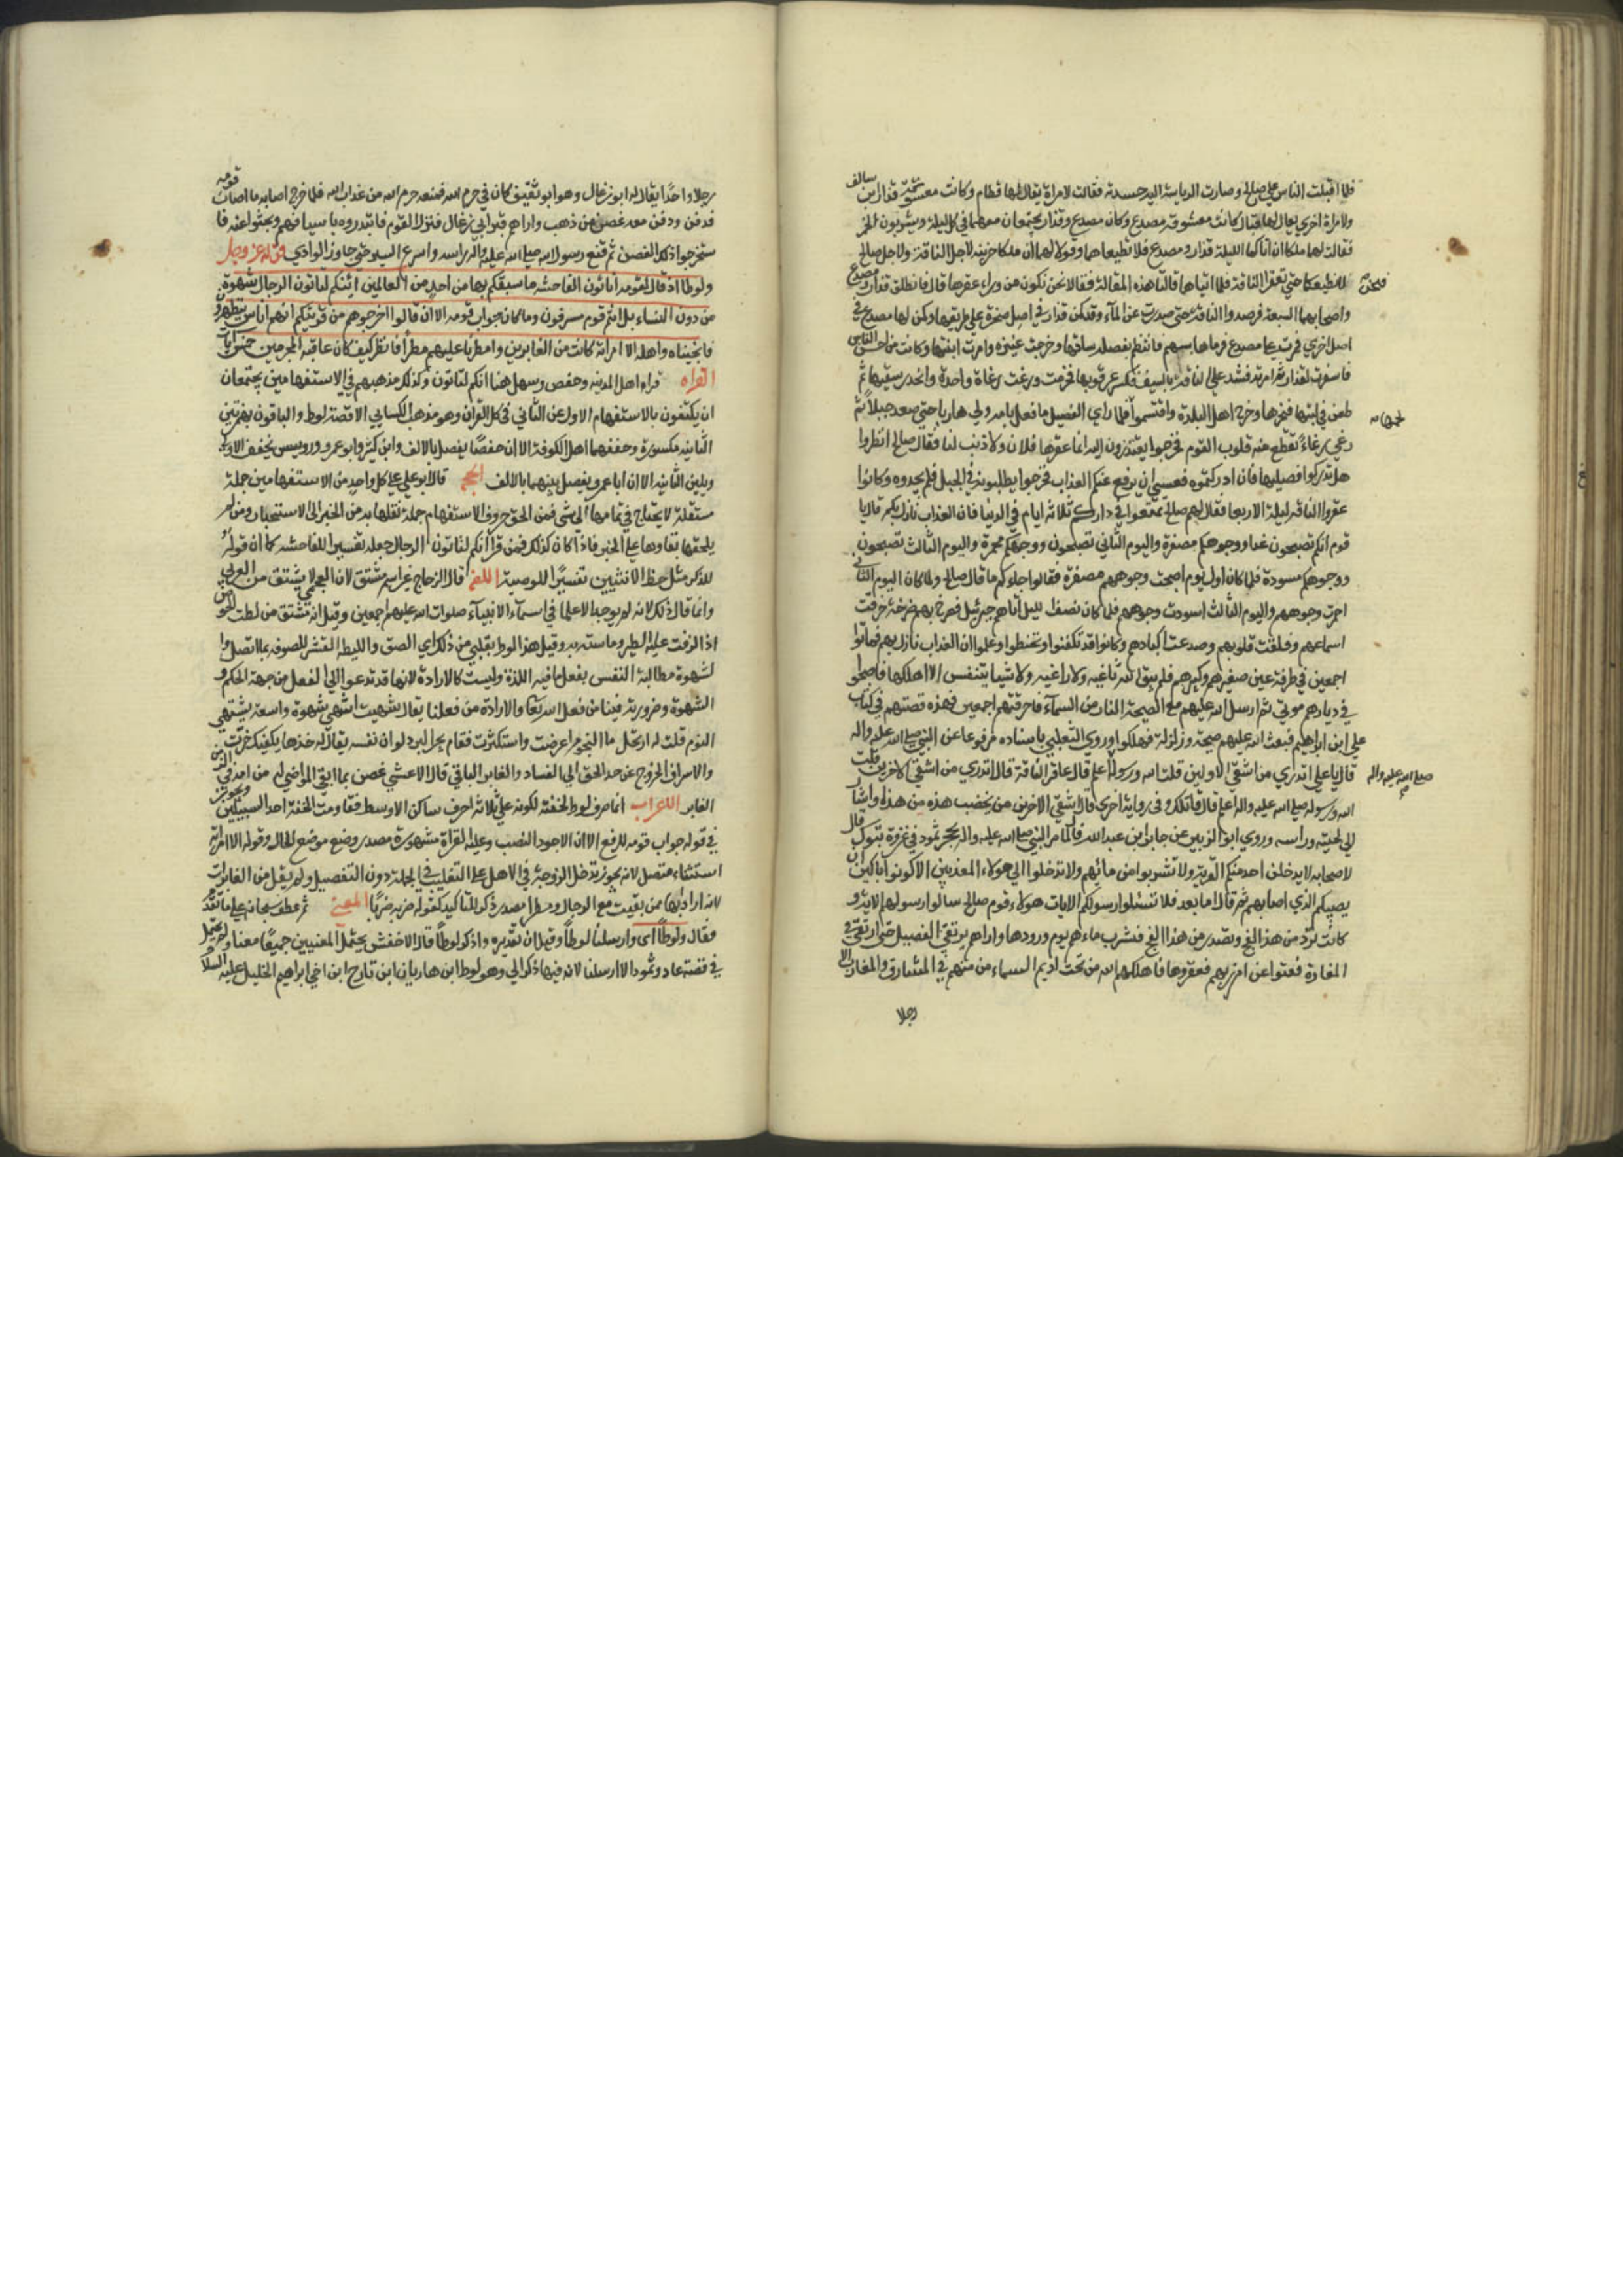 فلما اقبلت الناس على صالح وصارت الرياسة اليه حسدته فقالت لامراة يقال لها قطام وكانت معشوقة قدار بن سالف
ولامراة اخري يقال لها قبال كانت معشوقة مصدع وكان مصدع وقدار يجتمعان معهما في كل ليلة ويشربون الخمر
فقالت لهما ملكا ان اتاكما الليلة قدار ومصدع فلا تطيعاهما وقولا لهما ان ملكا حزينة لاجل الناقة ولاجل صالح
فنحن لا نطيعكما حتي تعقرا الناقة فلما اتياهما قالتا هذه المقالة فقالا نحن نكون من وراء عقرها قال فانطلق قدار ومصدع
واصحابهما السبعة فرصدوا الناقة حتي صدرت عن الماء وقد كمن قدار في اصل صخرة علي طريقها وكمن لها مصدع في
اصل اخري فمرت علي مصدع فرماها بسهم فانتظم به عضلة ساقها وخرجت عنيزة وامرت ابنتها وكانت من احسن الناس
فاسفرت لقدار ثم امرته فشد علي الناقة بالسيف فكسر عرقوبها فخرت ورغت رغاة واحدة وانحدر سقبها ثم
طعن في لبتها فنحرها وخرج اهل البلدة واقتسموا لحمها فلما راي الفصيل ما فعل بامه ولي هاربا حتي صعد جبلا ثم
رغي رغاء تقطع منه قلوب القوم فخرجوا يعتذرون اليه انما عقرها فلان ولا ذنب لنا فقال صالح انظروا
هل تدركوا فصيلها فان ادركتموه فعسي ان يرفع عنكم العذاب فخرجوا يطلبونه في الجبل فلم يجدوه وكانوا
عقروا الناقة ليلة الاربعا فقال لهم صالح تمتعوا في داركم ثلاثة ايام في الدنيا فان العذاب نازل بكم ثم قال يا
قوم انكم تصبحون غدا ووجوهكم مصفرة واليوم الثاني تصبحون ووجوهكم محمرة واليوم الثالث تصبحون
ووجوهكم مسودة فلما كان اول يوم اصبحت وجوههم مصفرة فقالوا جاءكم ما قال صالح ولما كان اليوم الثاني
احمرت وجوههم واليوم الثالث اسودت وجوههم فلما كان نصف الليل اتاهم جبرئيل فصرخ بهم صرخة خرقت
اسماعهم وفلقت قلوبهم وصدعت اكبادهم وكانوا قد تكفنوا وتحنطوا وعلموا ان العذاب نازل بهم فماتوا
اجمعين في طرفة عين صغيرهم وكبيرهم فلم يبق الله ثاغية ولا راغية ولا شيا يتنفس الا اهلكها فاصبحوا
في ديارهم موتي ثم ارسل الله عليهم مع الصيحة النار من السماء فاحرقتهم اجمعين فهذه قصتهم في كتاب
علي ابن ابراهيم فبعث الله عليهم صيحة وزلزلة فهلكوا وروي الثعلبي باسناده مرفوعا عن النبي صلي الله عليه واله
قال يا علي اتدري من اشقي الاولين قلت الله ورسوله اعلم قال عاقر الناقة قال اتدري من اشقي الاخرين قلت
الله ورسوله صلي الله عليه واله اعلم قال قاتلك وفي رواية اخري قال اشقي الاخرين من يخضب هذه من هذه واشار
الي لحيته وراسه وروي ابو الزبير عن جابر ابن عبد الله قال لما مر النبي صلي الله عليه واله بحجر ثمود في غزوة تبوك قال
لاصحابه لا يدخلن احد منكم القرية ولا تشربوا من مائهم ولا تدخلوا الي هولاء المعذبين الا ان تكونوا باكين ان
يصيبكم الذي اصابهم ثم قال اما بعد فلا تسئلوا رسولكم الايات هولاء قوم صالح سالوا رسولهم الاية و
كانت ترد من هذا الفج وتصدر من هذا الفج فتشرب ماءهم يوم ورودها واراهم مرتقي الفصيل حين ارتقي في
المغارة فعتوا عن امر ربهم فعقروها فاهلكهم الله من تحت اديم السماء من منهم في المشارق والمغارب الا
رجلا
رجلا واحدا يقال له ابو رغال وهو ابو ثقيف كان في حرم الله فمنعه حرم الله من عذاب الله فلما خرج اصابه ما اصاب قومه
فدفن ودفن معه غصن من ذهب واراهم قبر ابي رغال فنزل القوم فابتدروه باسيافهم وبحثوا عنه فا
ستخرجوا ذلك الغصن ثم قنع رسول الله صلي الله عليه واله راسه واسرع السير حتي جاوز الوادي قوله عز وجل
ولوطا اذ قال لقومه اتاتون الفاحشة ما سبقكم بها من احد من العالمين ائنكم لتاتون الرجال شهوة
من دون النساء بل انتم قوم مسرفون وما كان جواب قومه الا ان قالوا اخرجوهم من قريتكم انهم اناس يتطهرون
فانجيناه واهله الا امراته كانت من الغابرين وامطرنا عليهم مطرا فانظر كيف كان عاقبة المجرمين خمس ايات
القراه قراء اهل المدينة وحفص وسهل هنا انكم لتاتون وكذلك مذهبهم في الاستفهامين يجتمعان
ان يكتفون بالاستفهام الاول عن الثاني في كل القران وهو مذهب الكسايي الا قصة لوط والباقون بهمزتين
الثانية مكسورة وحققهما اهل الكوفة الا ان حفصا يفصل بالالف وابن كثير وابو عمرو ورويس بتخفيف الاولي
وتلين الثانية الا ان ابا عمرو يفصل بينهما بالالف الحجه قال ابو علي كل واحد من الاستفهامين جملة
مستقلة لا يحتاج في تمامها الي شي فمن الحق حروف الاستفهام جملة نقلها به من الخبر الي الاستخبار ومن لم
يلحقها بقاوها علي الخبر فاذا كان كذلك فمن قرا انكم لتاتون الرجال جعله تفسيرا للفاحشة كما ان قوله
للذكر مثل حظ الانثيين تفسيرا للوصية اللغه قال الزجاج غير اسم مشتق لان العجمي لا يشتق من العربي
وانما قال ذلك لانه لم يوجد الا علما في اسماء الانبياء صلوات الله عليهم اجمعين وقيل انه مشتق من لطت الحوض
اذا الزقت عليه الطين وملسته به وقيل هذا الوط بقلبي من ذلك اي الصق والليطة القشر للصوقه بما اتصل وا
لشهوة مطالبة النفس بفعل ما فيه اللذة وليست كالارادة لانها قد تدعوا الي الفعل من جهة الحكم و
الشهوة وضرورية فينا من فعل الله تعا والارادة من فعلنا يقال شهيت اشهي شهوة
والاسراف الخروج عن حد الحق الي الفساد والغابر الباقي قال الاعشي غصن بما ابقي المواضي له من امه في الزمن
الغابر الاعراب انما صرف لوط لخفته لكونه علي ثلاثة احرف ساكن الاوسط فقاومت الخفة احد السببين ويجوز
في قوله جواب قومه الرفع الا ان الاجود النصب وعليه القراة مشهورة مصدر وضع موضع الحال وقوله الا امراته
استثناء متصل لانه يجوز تدخل الزوجة في الاهل علي التغليب في الجملة دون التفصيل ولم يقل من الغابرات
لانه اراد انها ممن بقيت مع الرجال ومطرا مصدر ذكر للتاكيد كقوله ضربه ضربا المعني ثم عطف سبحانه علي ما تقدم
فقال ولوطا اي وارسلنا لوطا وقيل ان تقديره واذكر لوطا قال الاخفش يحتمل المعنيين جميعا معنا ولم يحتمل
في قصة عاد وثمود الا ارسلنا لانه فيها ذكر الي وهو لوط ابن هاران ابن تارح ابن اخي ابراهيم الخليل عليه السلام